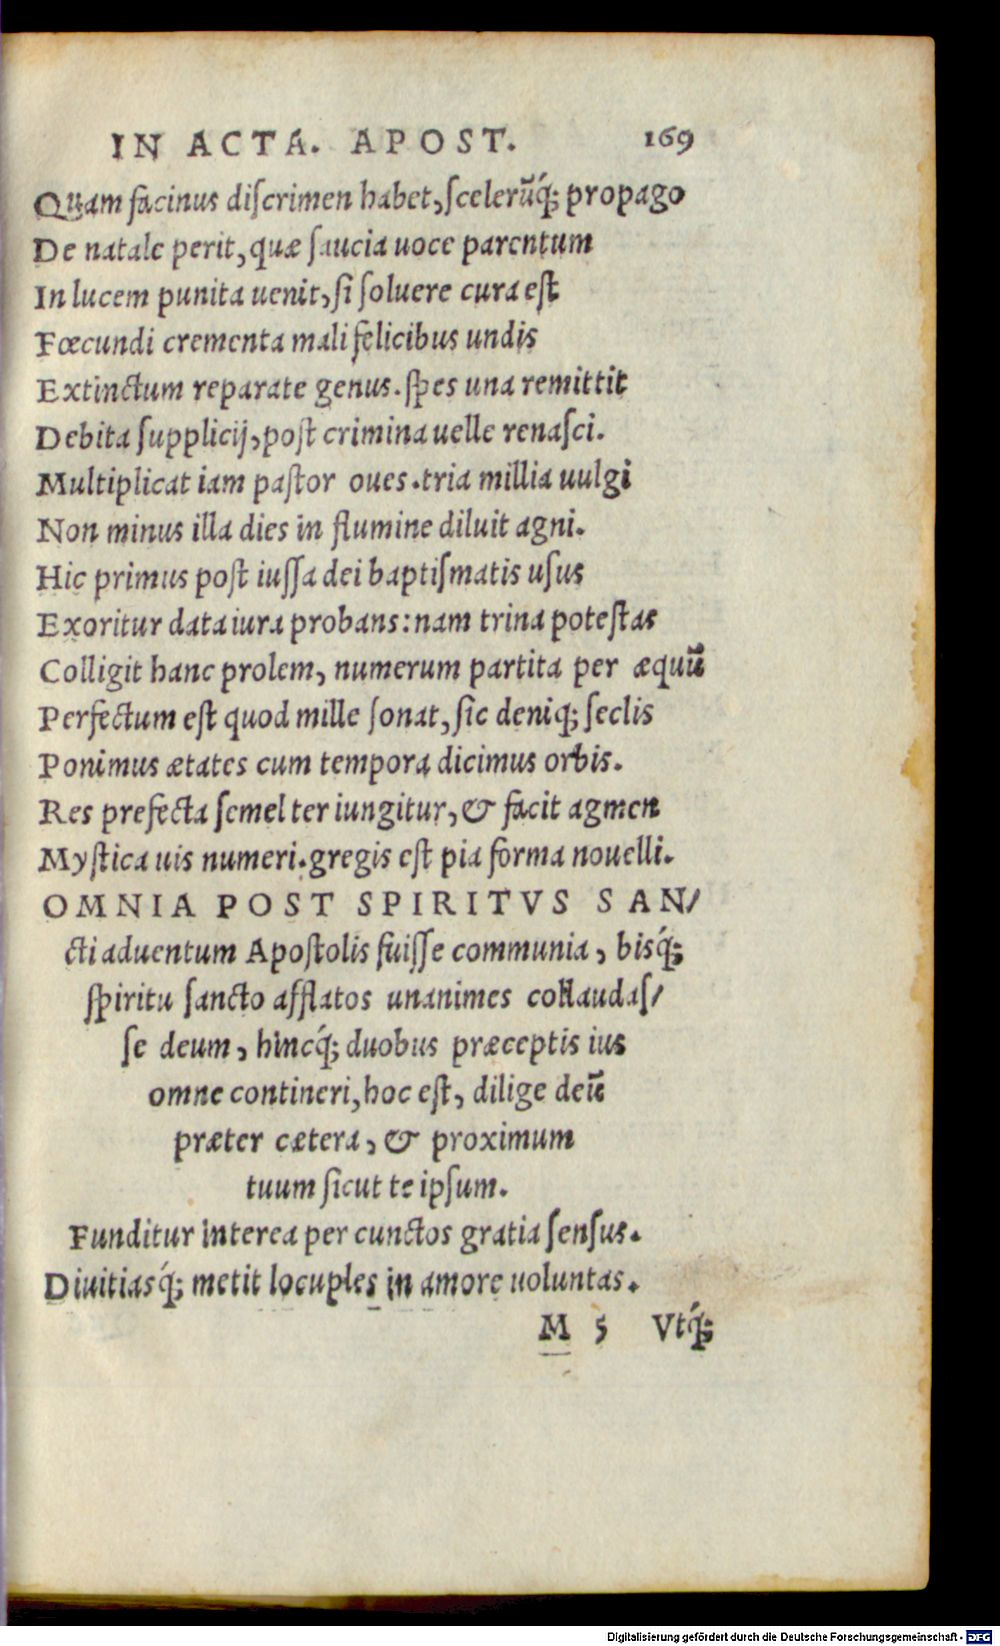 IN ACTA. APOST. 169
Quam facinus diſcrimen habet, ſcelerũq́; propago
De natale perit, quæ ſaucia uoce parentum
In lucem punita uenit, ſi ſoluere cura eſt
Fœcundi crementa mali felicibus undis
Extinctum reparate genus. ſpes una remittit
Debita ſupplicij, poſt crimina uelle renaſci.
Multiplicat iam paſtor oues. tria millia uulgi
Non minus illa dies in flumine diluit agni.
Hic primus poſt iuſſa dei baptiſmatis uſus
Exoritur data iura probans: nam trina poteſtas
Colligit hanc prolem, numerum partita per æquũ
Perfectum eſt quod mille ſonat, ſic deniq; ſeclis
Ponimus ætates cum tempora dicimus orbis.
Res prefecta ſemel ter iungitur, & facit agmen
Myſtica uis numeri. gregis eſt pia forma nouelli.
OMNIA POST SPIRITVS SAN/
cti aduentum Apoſtolis fuiſſe communia, bisq́;
ſpiritu ſancto afflatos unanimes collaudaſ/
ſe deum, hincq́; duobus præceptis ius
omne contineri, hoc eſt, dilige deũ
præter cætera, & proximum
tuum ſicut te ipſum.
Funditur interea per cunctos gratia ſenſus.
Diuitiasq́; metit locuples in amore uoluntas.
M 5 Vtq́;
Digitalisierung gefördert durch die Deutsche Forschungsgemeinschaft - DFG